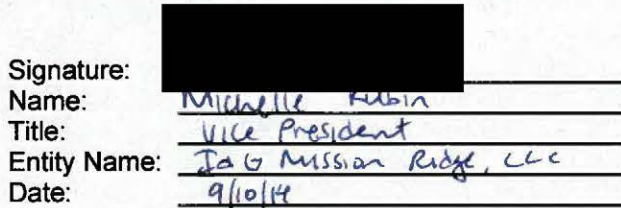 Signature:
Name: Michelle Rubin
Title: Vice President
Entity Name: I&G Mission Ridge, LLC
Date: 9/10/14